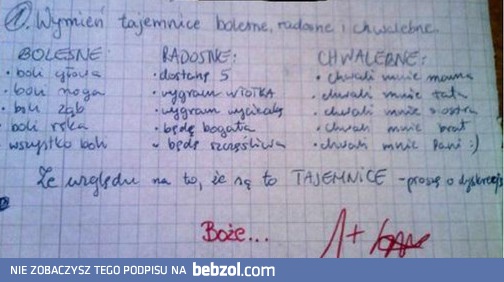 1. Wymień tajemnice bolesne, radosne i chwalebne.
BOLESNE: RADOSTNE: CHWALEBNE:
• boli głowa • dostanę 5 • chwali mnie mama
• boli noga • wygram WIOTKA • chwali mnie tata
• boli ząb • wygram wycieczkę • chwali mnie siostra
• boli ręka • będę bogata • chwali mnie brat
wszystko boli • będę szczęśliwa • chwali mnie Pani :)
Ze względu na to, że są to TAJEMNICE - proszę o dyskrecję
Boże... 1+
NIE ZOBACZYSZ TEGO PODPISU NA bebzol.com